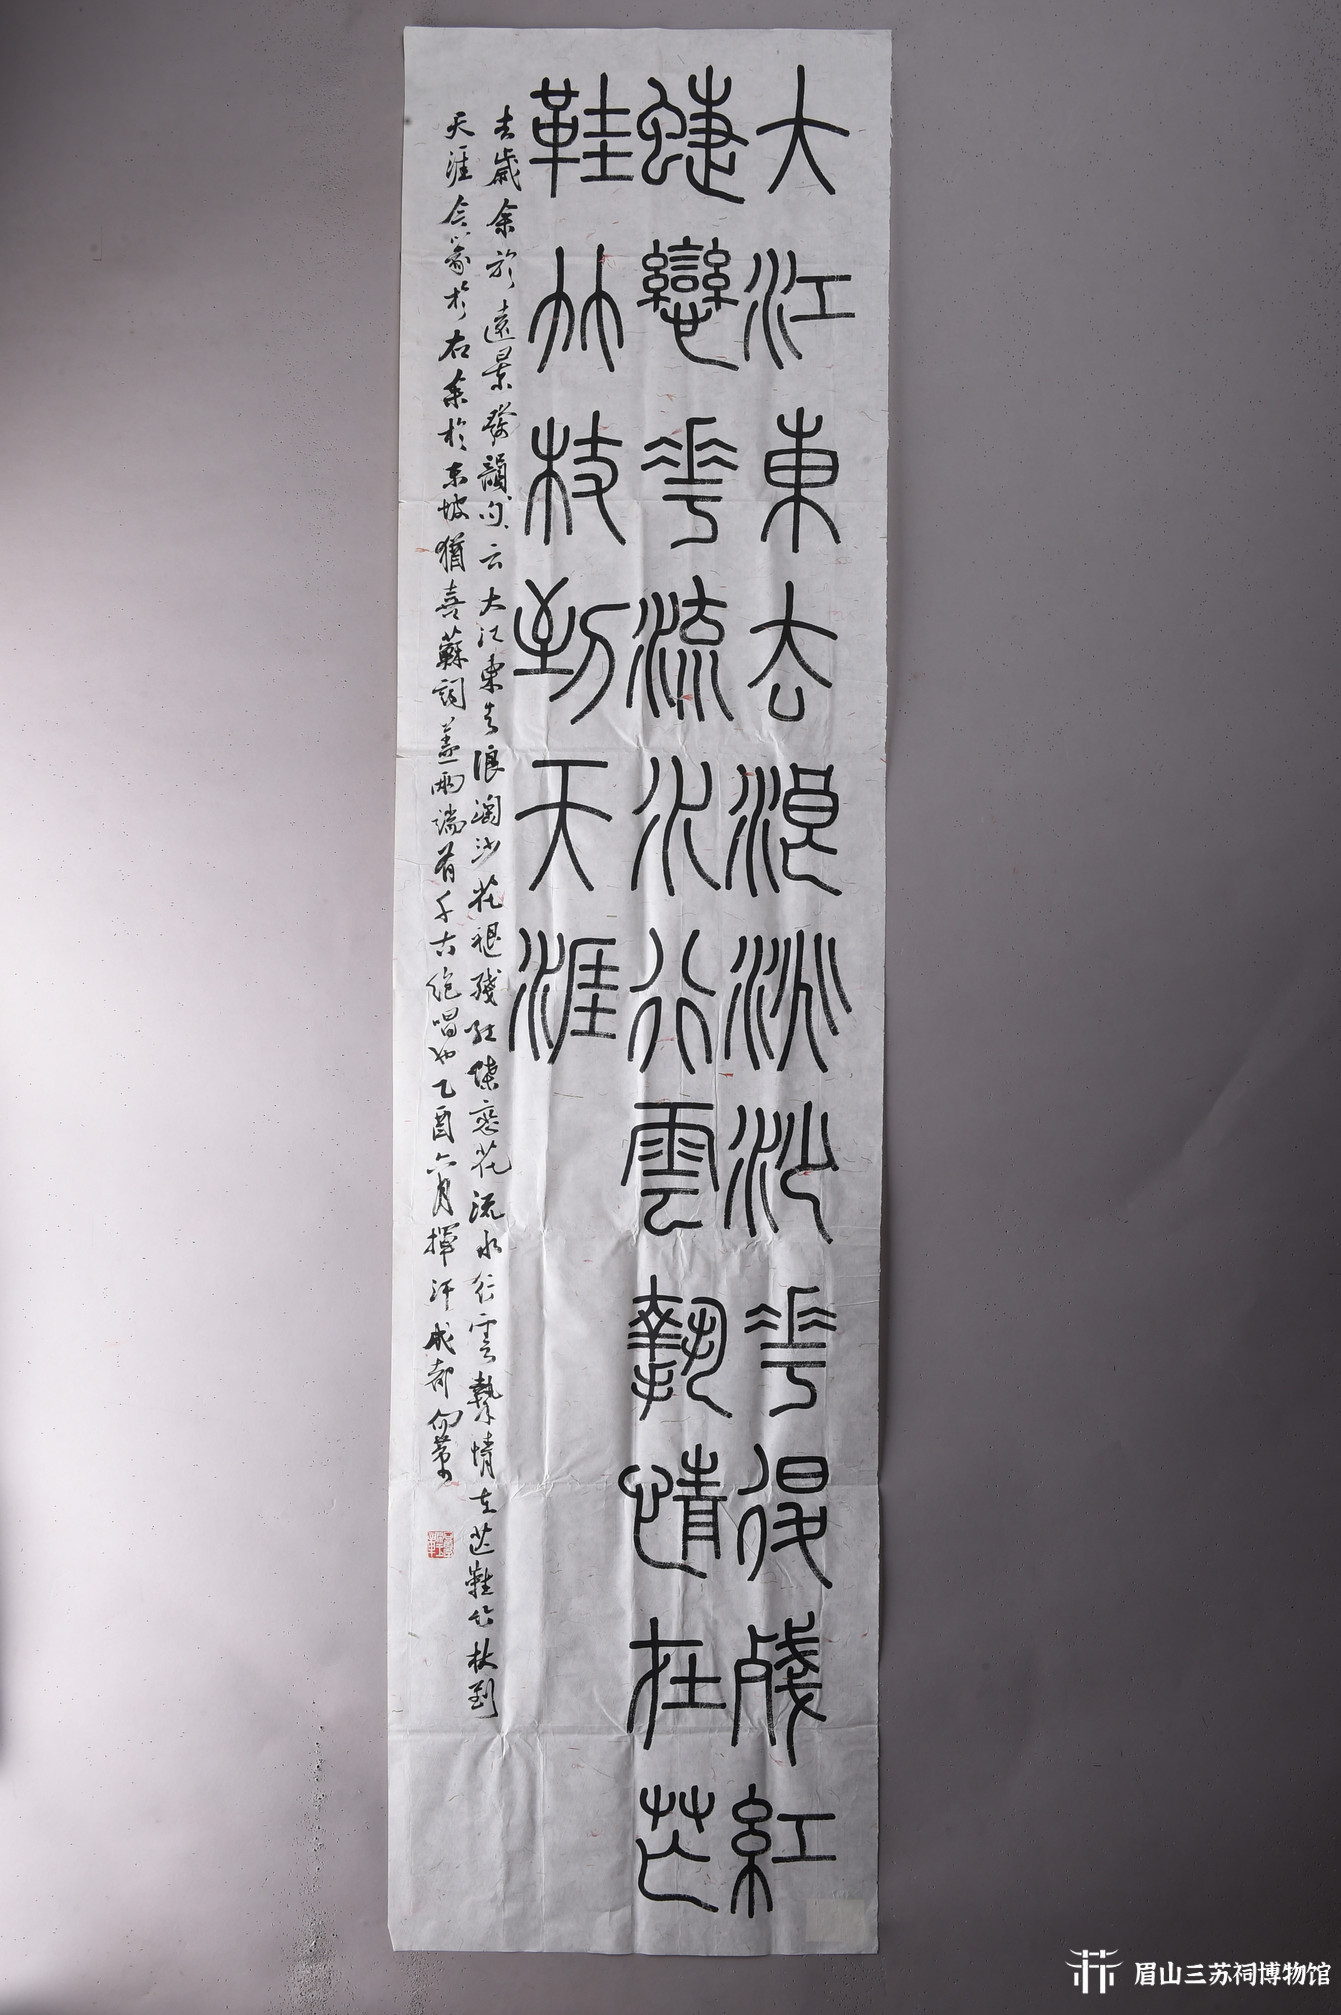 大江東去浪淘沙花退殘紅
蜨戀花流水行雲摯情在芒
鞋竹杖到天涯
去歲余於遠景發韻句云大江東去浪淘沙花褪殘紅蝶恋花流水行雲摯情在芒鞋竹杖到
天涯今篆於右余於东坡猶喜蘇詞盖两端有千古绝唱也乙酉六月揮汗成都
眉山三苏祠博物馆